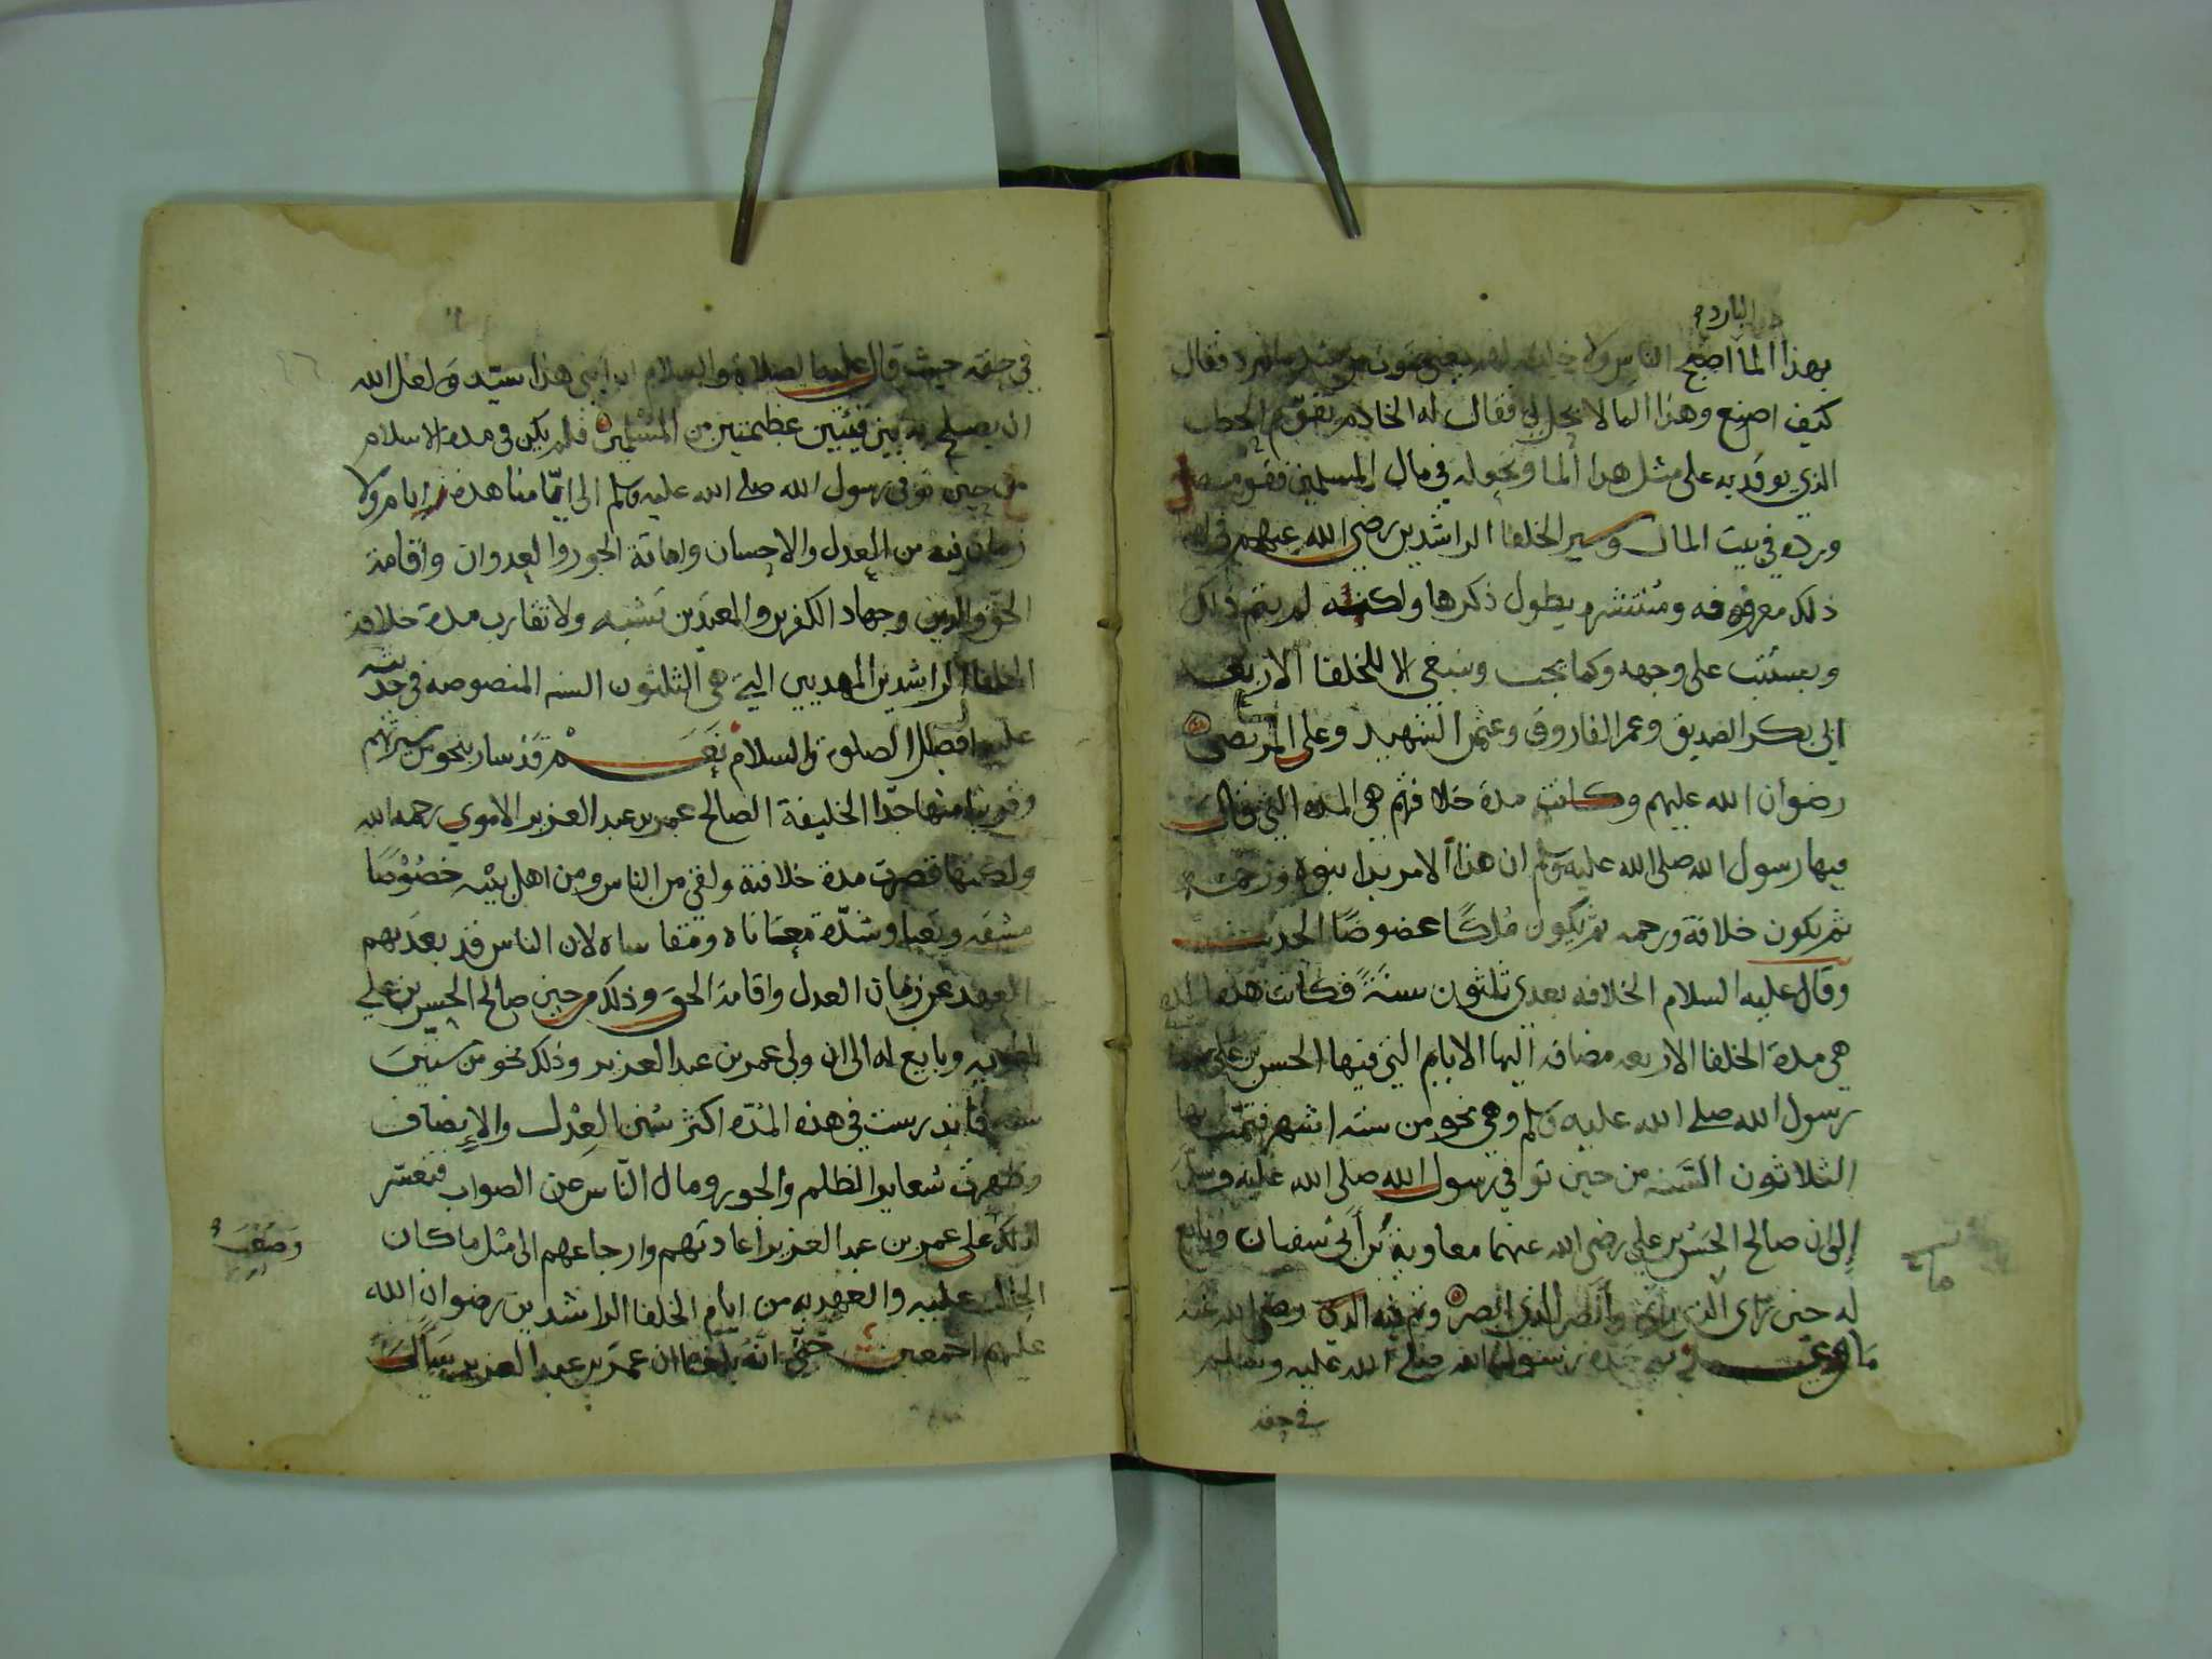 البارد
بهذا الما اصبح الناس ولا فقال
كيف اصنع وهذا الما لا يحل لي فقال له الخادم يقوّم الحطب
الذي يوقد به على مثل هذا الما ونحوله في مال المسلمين فقوم
ورده في بيت المال وسير الخلفا الراشدين رضي الله عنهم في
ذلك معروفه ومنتشره يطول ذكرها ولكنه لم يقم ذلك
ويستتب على وجهه وكما يجب وينبغي الا للخلفا الاربعه
ابي بكر الصديق وعمر الفاروق وعثمن الشهيد وعلى المرتضى
رضوان الله عليهم وكانت مدة خلافتهم هي المده التي قال
فيها رسول الله صلى الله عليه وسلم ان هذا الامر بدا نبوه ورحمه
ثم يكون خلافة ورحمه ثم يكون مُلكًا عضوضًا الحديث
وقال عليه السلام الخلافه بعدي ثلثون سنةً فكانت هذه المده
هي مدة الخلفا الاربعه مضافه اليها الايام التي فيها الحسن بن علي
رسول الله صلى الله عليه وسلم وهي نحو من ستة اشهر فتمت بها
الثلاثون السنه من حين توفي رسول الله صلى الله عليه وسلم
إلى ان صالح الحسن بن علي رضي الله عنهما معاوية بن أبي سفيان وبايع
له حين راى الذي رأى وأبصر الذي ابصر وتم فيه الذي رضي الله عنه
جده رسول الله صلى الله عليه وسلم
في حقه
في حقه حيث قال عليه الصلاة والسلام ان ابني هذا سيّد ولعل الله
ان يصلح به بين فئتين عظيمتين من المسلمين فلم يكن في مدة الاسلام
من حين توفي رسول الله صلى الله عليه وسلم الى ايّامنا هذه ايام ولا
زمان فيه من العدل والاحسان واماتة الجور والعدوان واقامة
الحق والدين وجهاد الكفرين والمعتدين تشبه ولا تقارب مدة خلافة
الخلفا الراشدين المهديين التي هي الثلثون السنه المنصوصه في حديثه
عليه افضل الصلوة والسلام نعم قد سار بنحو من سيرتهم
وقريبا منها جدّا الخليفة الصالح عمر بن عبد العزيز الاموي رحمه الله
ولكنها قصرت مدة خلافته ولقي من الناس ومن اهل بيته خصُوصًا
مشقه وتعبا وشدّة معاناة ومقاساه لان الناس قد بعد بهم
العهد عن زمان العدل واقامة الحق وذلك من حين صالح الحسن بن علي
لمعويه وبايع له الى ان ولي عمر بن عبد العزيز وذلك نحو من ستين
سنه فاندرست في هذه المُدّه اكثر سُنن العدل والإنصاف
وظهرت شعاير الظلم والجور ومال النّاس عن الصواب فتعسّر
لذلك على عمر بن عبد العزيز اعادتهم وارجاعهم الى مثل ما كان
الحال عليه والعهد به من ايام الخلفا الراشدين رضوان الله
عليهم اجمعين حتّى انّه بلغنا ان عمر بن عبد العزيز سأل
وصعب